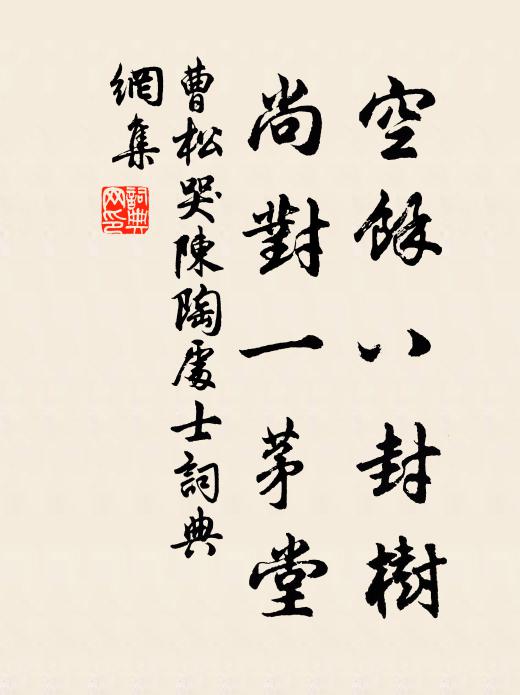 空餘八封樹
尚對一茅堂
曹松哭陳陶處士詞典
網集
詞典
网印